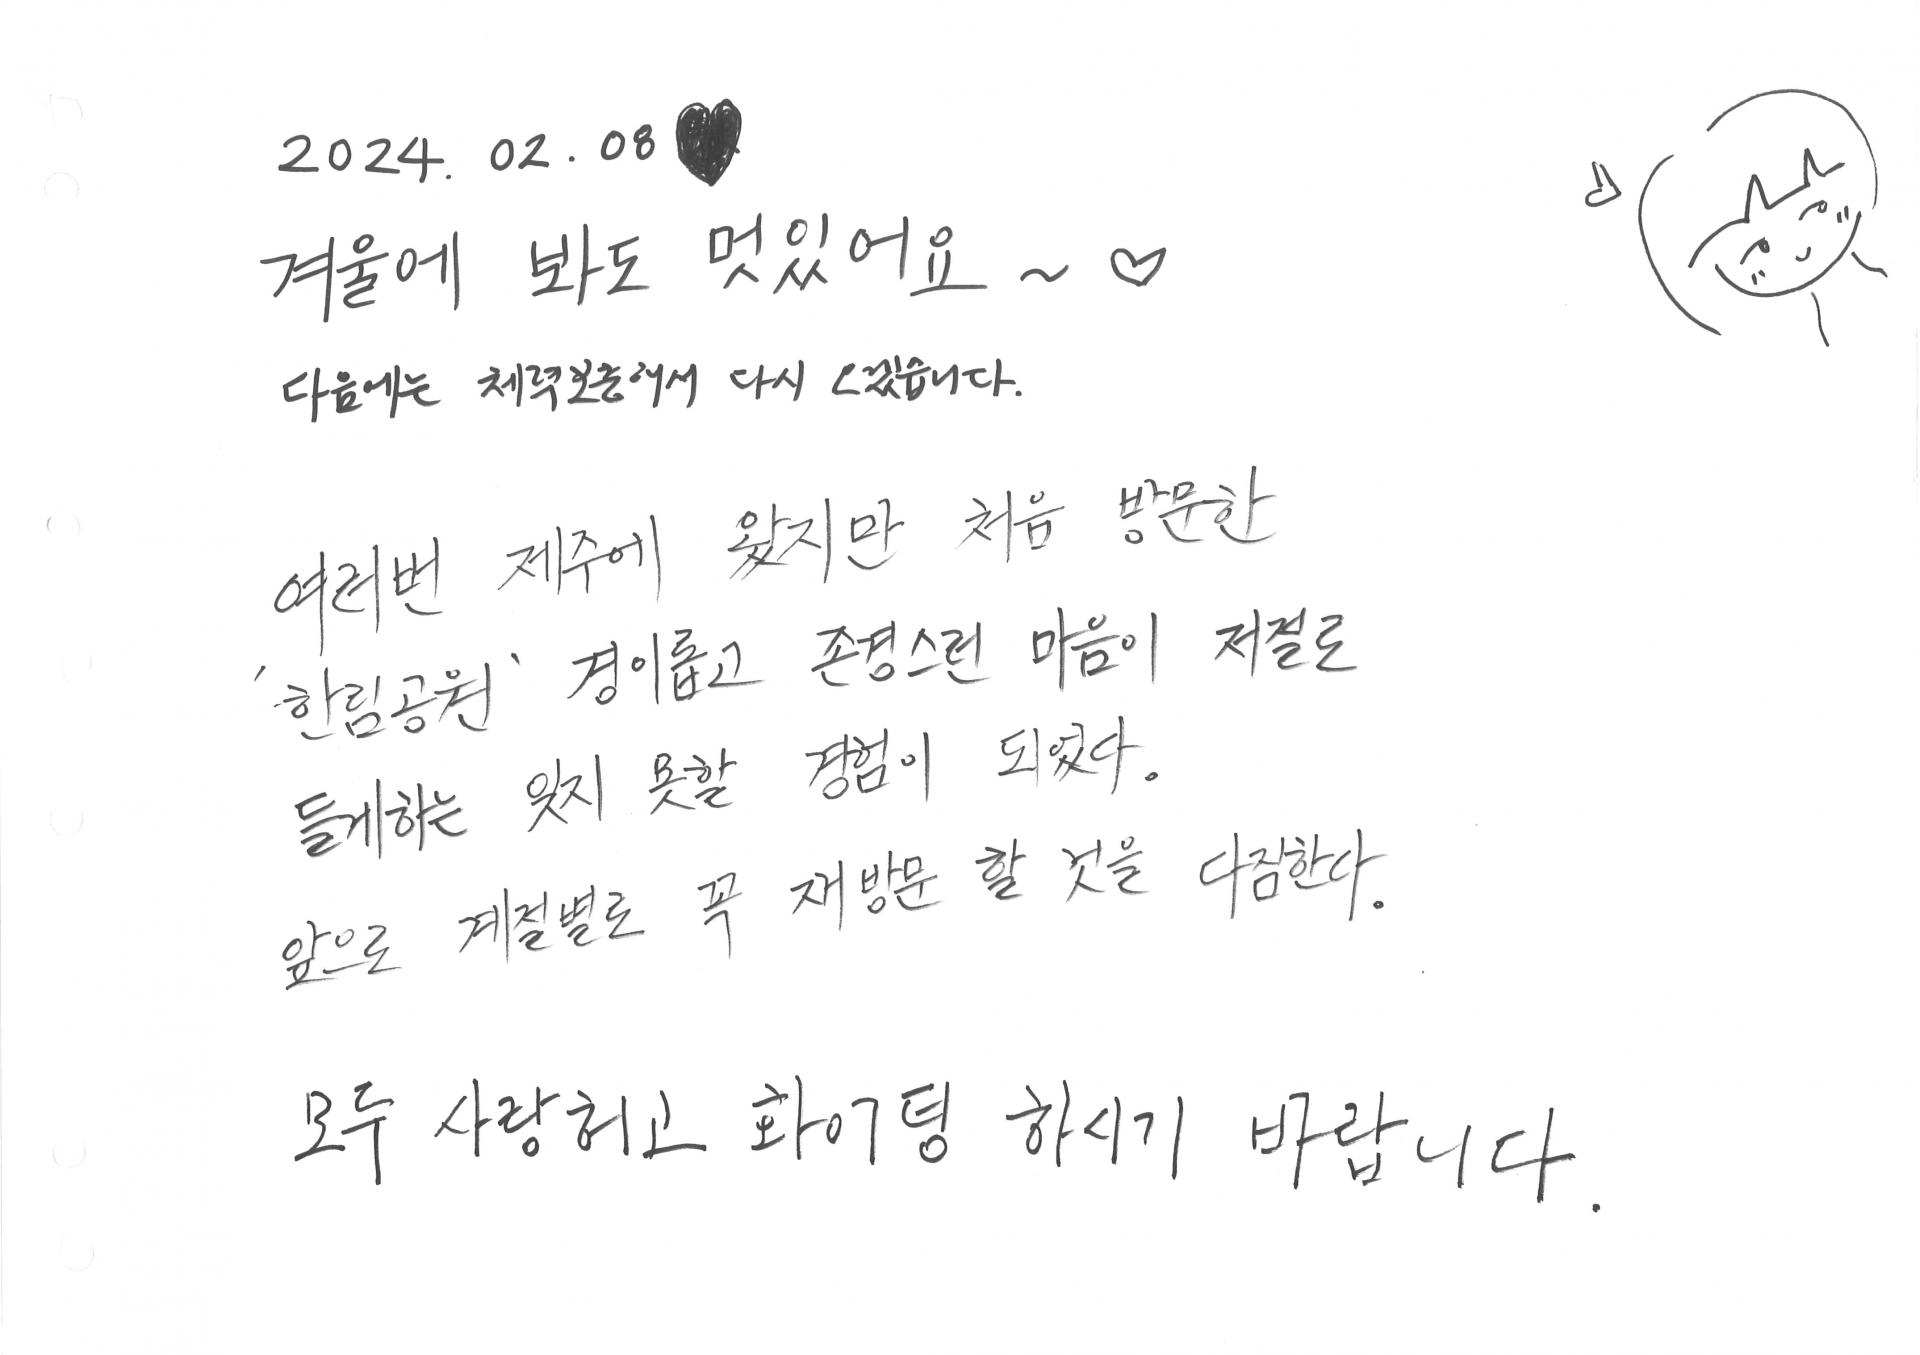 2024. 02. 08 ♥
겨울에 봐도 멋있어요~ ♡
다음에는 체력보충해서 다시 오겠습니다.
여러번 제주에 왔지만 처음 방문한
'한림공원' 경이롭고 존경스런 마음이 저절로
들게하는 잊지 못할 경험이 되었다.
앞으로 계절별로 꼭 재방문 할 것을 다짐한다.
모두 사랑허고 화이팅 하시기 바랍니다.